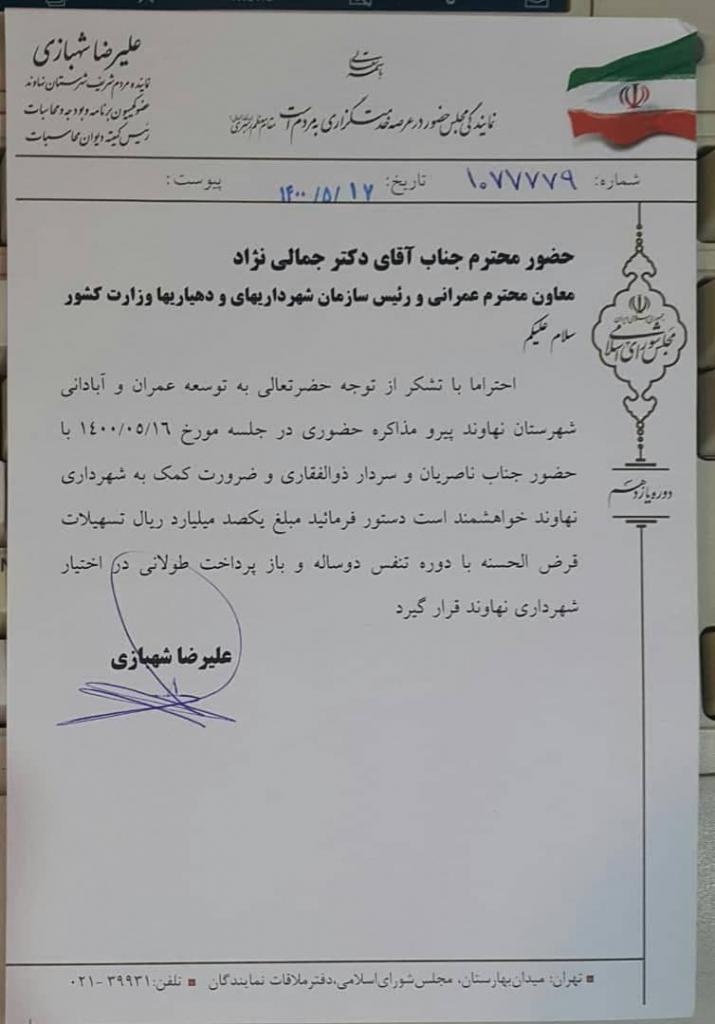 باسمه تعالی
علیرضا شهبازی
نماینده مردم شریف شهرستان نهاوند
عضو کمیسیون برنامه و بودجه و محاسبات
رئیس کمیته دیوان محاسبات
نمایندگی مجلس حضور در عرصه خدمتگزاری به مردم است مقام معظم رهبری
شماره: ۱۰۷۷۷۷۹ تاریخ: ۱۴۰۰/۵/۱۷ پیوست:
مجلس شورای اسلامی
دوره یازدهم
حضور محترم جناب آقای دکتر جمالی نژاد
معاون محترم عمرانی و رئیس سازمان شهرداریهای و دهیاریها وزارت کشور
سلام علیکم
احتراما با تشکر از توجه حضرتعالی به توسعه عمران و آبادانی
شهرستان نهاوند پیرو مذاکره حضوری در جلسه مورخ ۱٤۰۰/۰۵/۱۶ با
حضور جناب ناصریان و سردار ذوالفقاری و ضرورت کمک به شهرداری
نهاوند خواهشمند است دستور فرمائید مبلغ یکصد میلیارد ریال تسهیلات
قرض الحسنه با دوره تنفس دوساله و باز پرداخت طولانی در اختیار
شهرداری نهاوند قرار گیرد
علیرضا شهبازی
تهران: میدان بهارستان، مجلس شورای اسلامی، دفتر ملاقات نمایندگان تلفن: ۳۹۹۳۱-۰۲۱